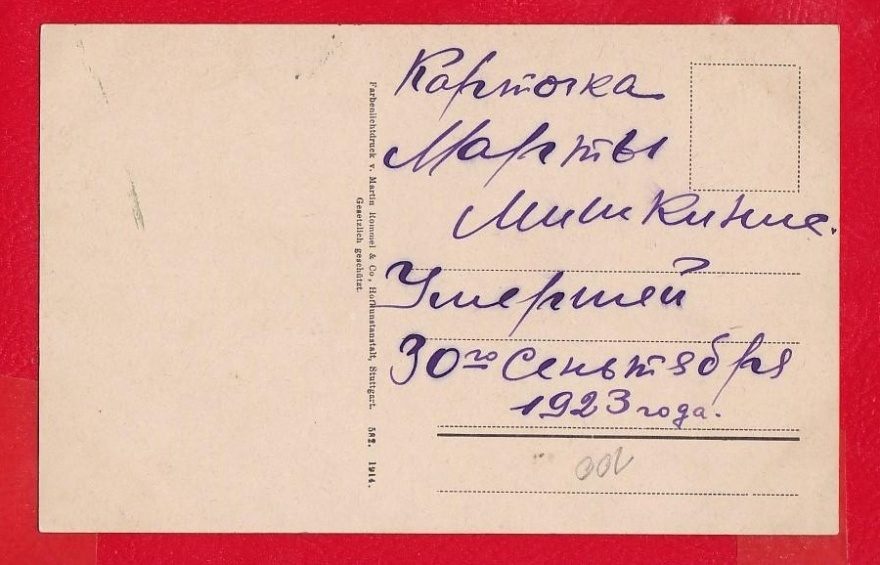 Карточка
Марты
Умершей
30го Сеньтября
1923 года.
Farbenlichtdruck v. Martin Rommel & Co., Hofkunstanstalt, Stuttgart. 582. 1914.
Gesetzlich geschützt.